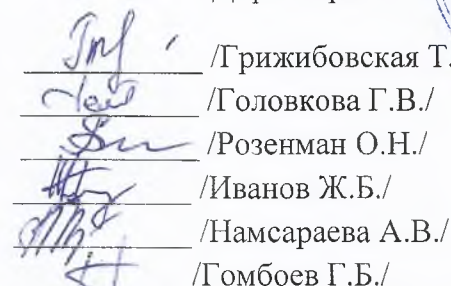 /Грижибовская Т.
/Головкова Г.В./
/Розенман О.Н./
/Иванов Ж.Б./
/Намсараева А.В./
/Гомбоев Г.Б./